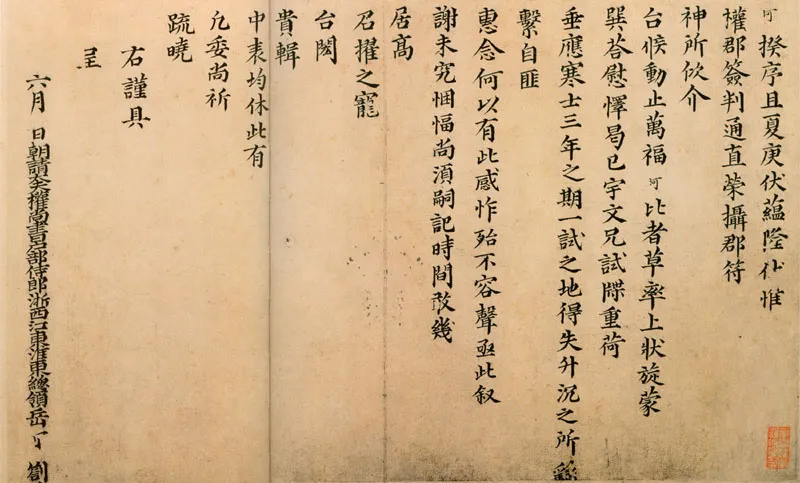 可揆序且夏庚伏蘊隆仆惟
權郡簽判通直榮攝郡符
神所佽介
台候動止萬福可比者草率上狀旋蒙
巽荅慰懌曷已宇文兄試牒重荷
垂應寒士三年之期一試之地得失升沉之所繇
繫自匪
惠念何以有此感怍殆不容聲亟此叙
謝未究悃愊尚須嗣記時間敢幾
居高
召擢之寵
台閤
貴輯
中表均休此有
凢委尚祈
疏曉
右謹具
呈
六月 日朝請大夫權尚書戶部侍郎浙西江東淮東總領岳可劄